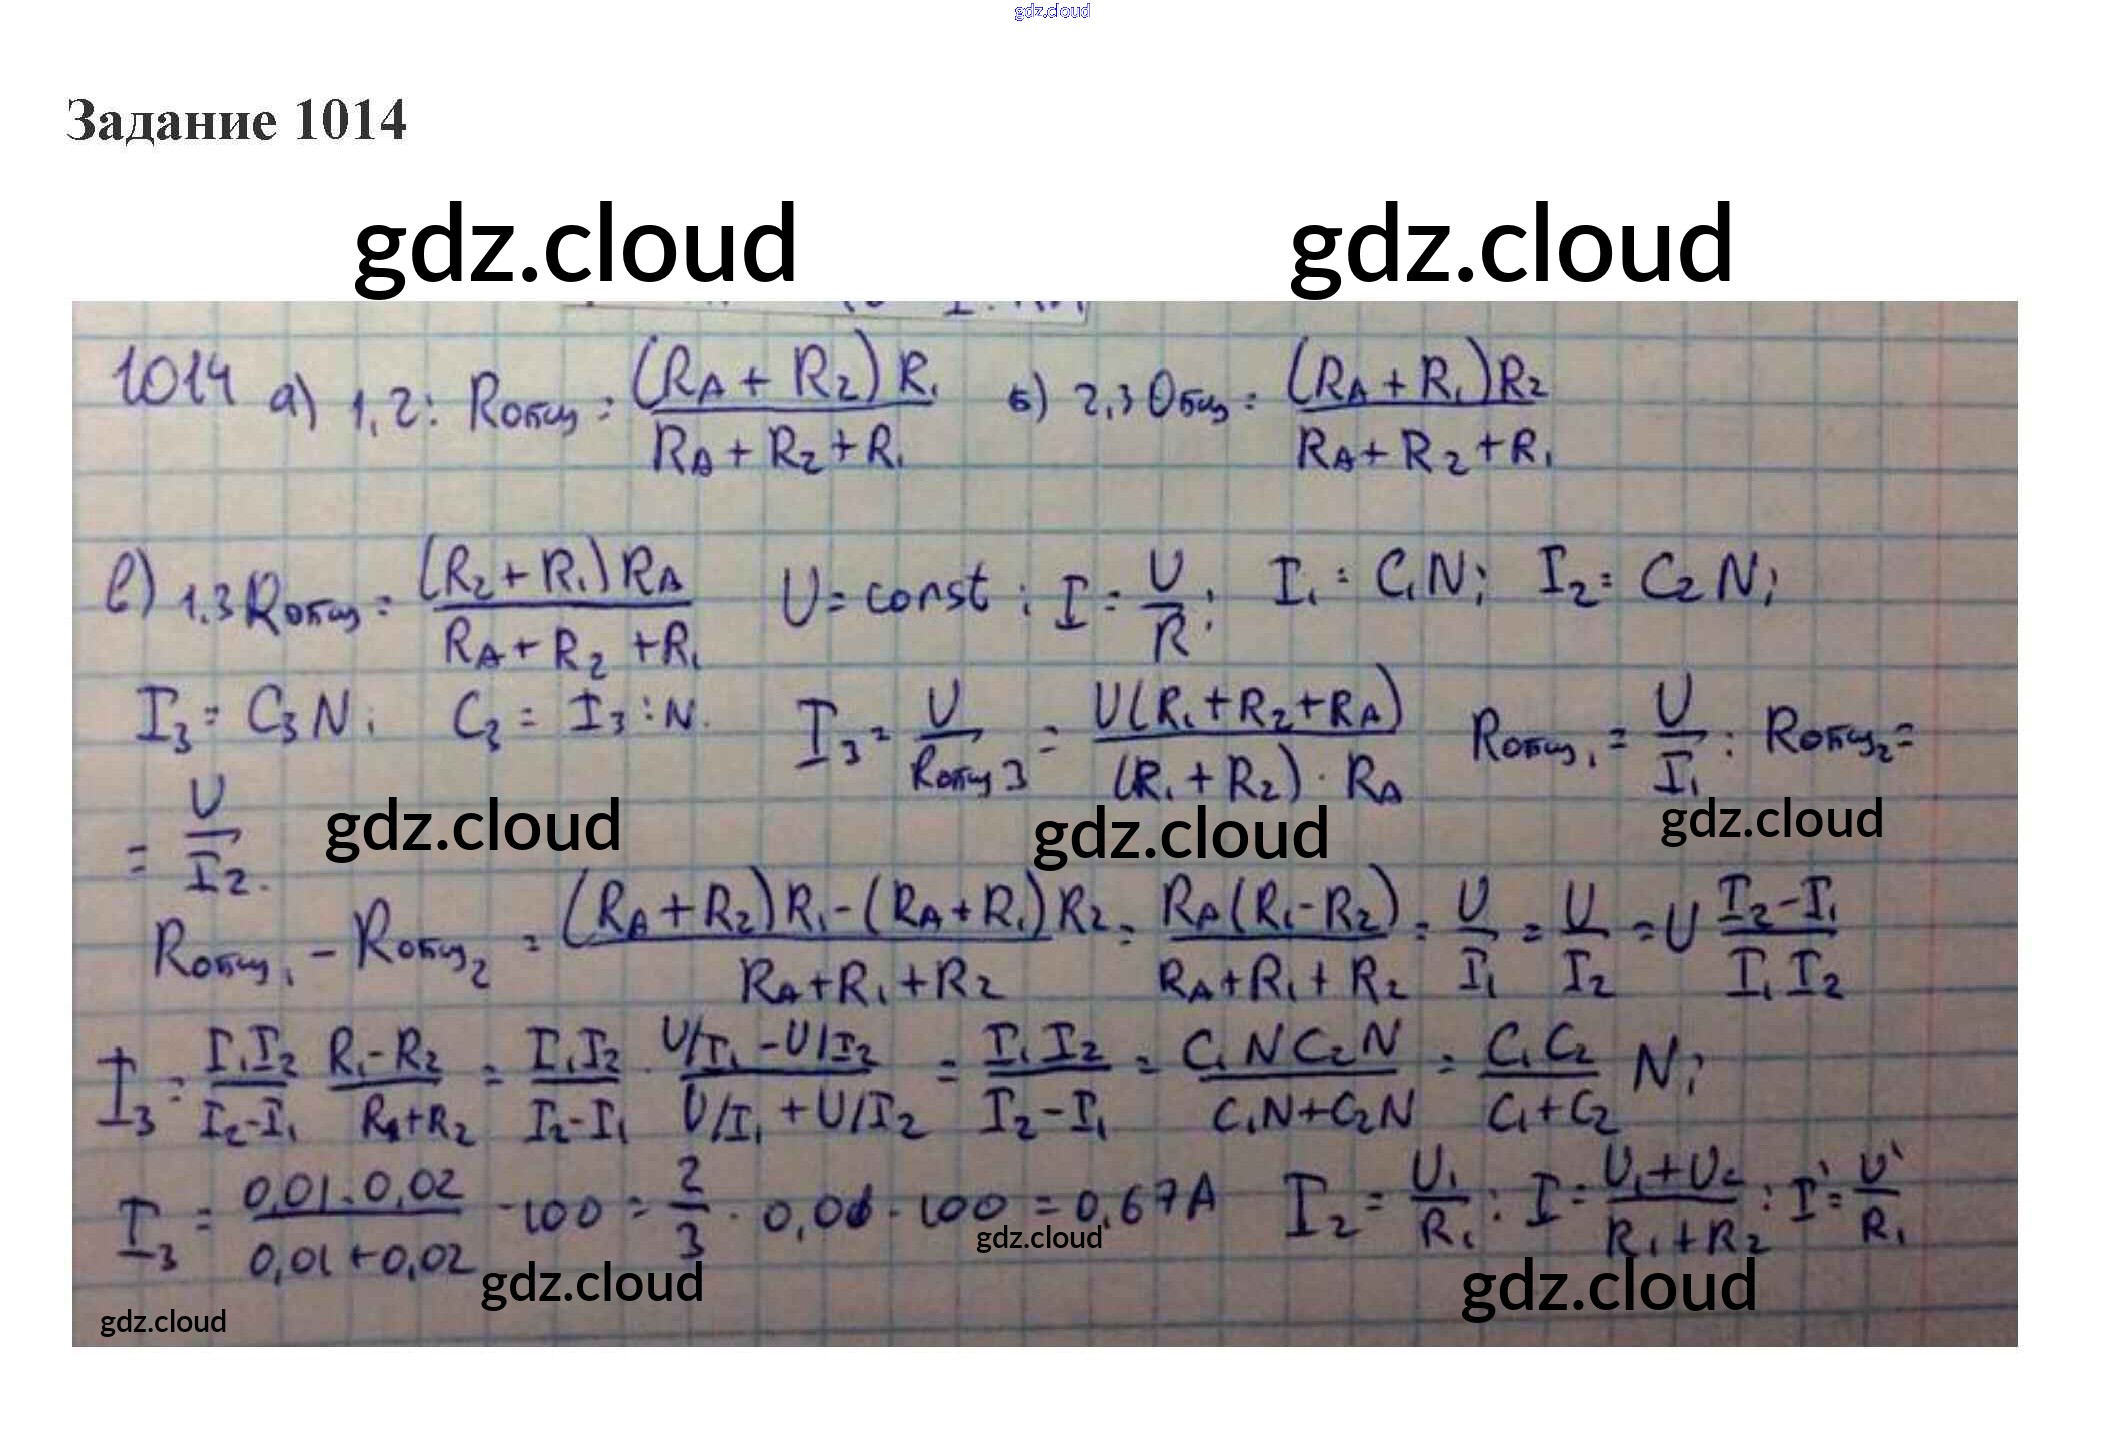 gdz.cloud
Задание 1014
gdz.cloud gdz.cloud
1014 а) 1,2: Rобщ = (RA + R2) R1 / RA + R2 + R1 б) 2,3 Общ = (RA + R1) R2 / RA + R2 + R1
в) 1.3 Rобщ = (R2 + R1) RA / RA + R2 + R1 U = const ; I = U / R ; I1 = C1N; I2 = C2N;
I3 = C3N; C3 = I3 : N. I3 = U / Rобщ3 = U(R1 + R2 + RA) / (R1 + R2) · RA Rобщ1 = U / I1 : Rобщ2 =
= U / I2.
gdz.cloud gdz.cloud gdz.cloud
Rобщ1 - Rобщ2 = (RA + R2) R1 - (RA + R1) R2 / RA + R1 + R2 = RA (R1 - R2) / RA + R1 + R2 = U / I1 = U / I2 = U I2 - I1 / I1 I2
I3 = I1 I2 / I2 - I1 R1 - R2 / R1 + R2 = I1 I2 / I2 - I1 · U/I1 - U/I2 / U/I1 + U/I2 = I1 I2 / I2 - I1 = C1 N C2 N / C1N + C2N = C1 C2 / C1 + C2 N;
I3 = 0,01 · 0,02 / 0,01 + 0,02 · 100 = 2 / 3 · 0,01 · 100 = 0,67 A I2 = U1 / R1 : I = U1 + U2 / R1 + R2 : I' = U' / R1
gdz.cloud
gdz.cloud gdz.cloud
gdz.cloud